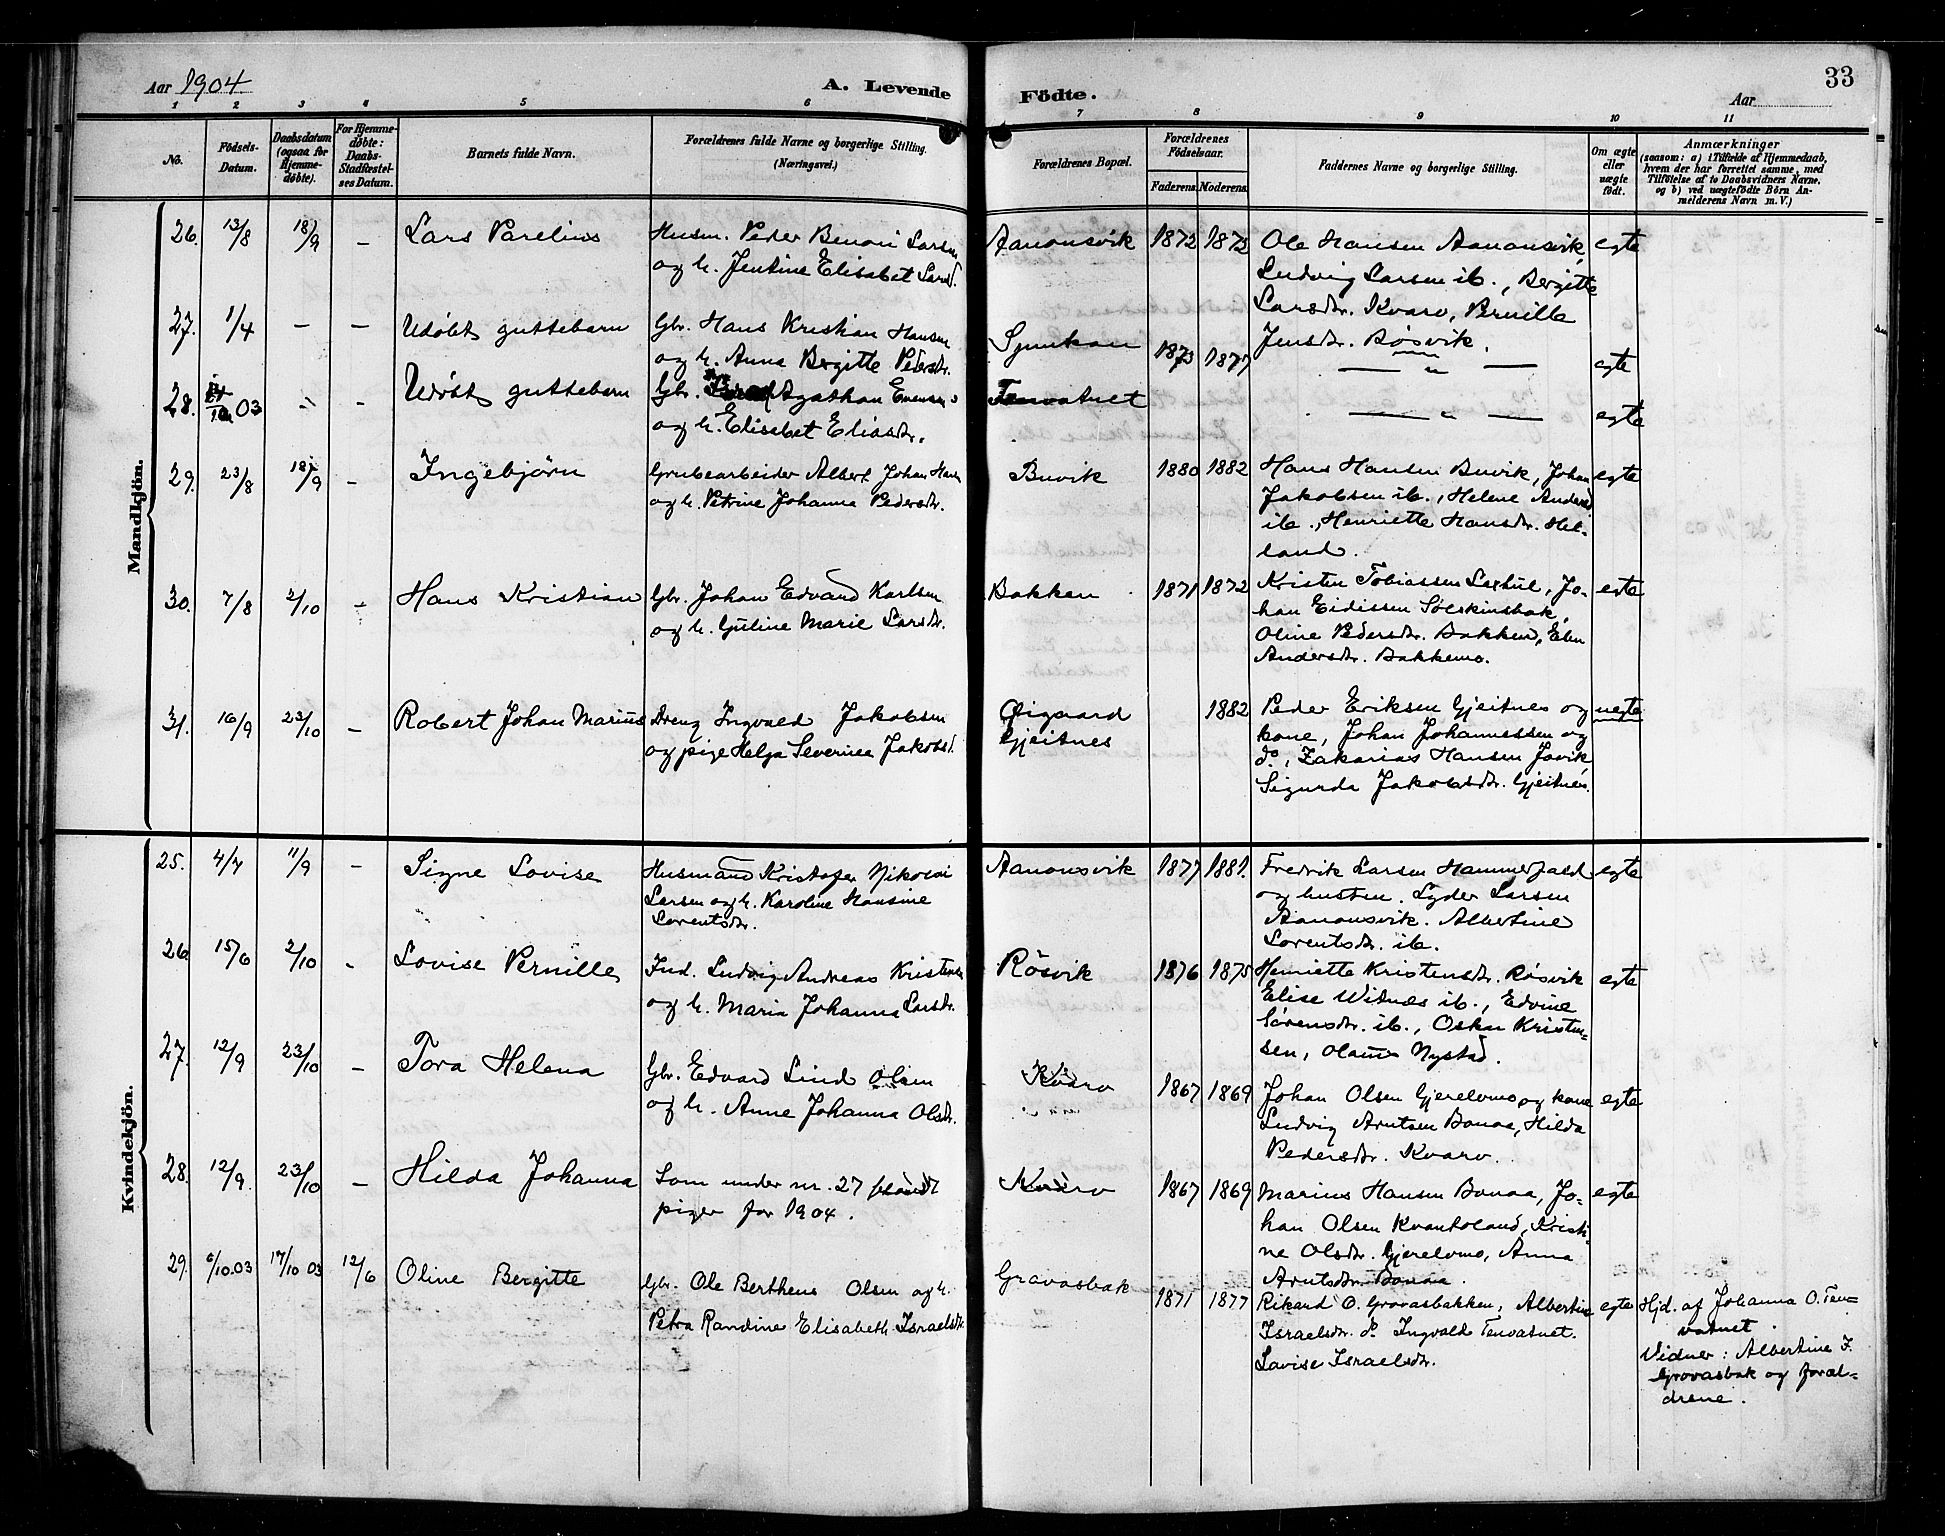 Aar 1904.
A. Levende Födte.
33
Aar
1 2 3 4 5 6 7 8 9 10 11
No.
Födsels-
Datum.
Daabsdatum
(ogsaa for
Hjemme-
döbte).
For Hjemme-
døbte:
Daabs-
Stadfæstel-
ses Datum.
Barnets fulde Navn.
Forældrenes fulde Navne og borgerlige Stilling.
(Næringsvei.)
Forældrenes Bopæl.
Forældrenes
Fødselsaar.
Faderens. Moderens.
Faddernes Navne og borgerlige Stilling.
Om ægte
eller
uægte
født.
Anmærkninger
(saasom: a) i Tilfælde af Hjemmedaab,
hvem der har forrettet samme, med
Tilføielse af to Daabsvidners Navne,
og b) ved uægtefødte Börn An-
melderens Navn m. V.)
Mandkjön.
26. 13/8 18/9 – Lars Parelius
Husm. Peder Benoni Larsen
og h. Jentine Elisabet Larsd.
Aanonsvik 1872 1873
Ole Hansen Aanonsvik,
Ludvig Larsen ib., Bergitte
Larsdr. Kvarv, Pernille
Jensdr. Røsvik.
egte
27. 1/4 – – Udøbt guttebarn
Gbr. Hans Kristian Hansen
og h. Anna Bergitte Pedersdr.
1873 1877
— " —
egte
28. 03 – – Udøbt guttebarn
Gbr. Agathon Evensen
og h. Elisabet Eliasdr.
Tenvatnet
— " —
egte
29. 23/8 18/9 – Ingebjørn
Grubearbeider Albert Johan Hansen
og h. Petrine Johanna Pedersdr.
Buvik 1880 1882
Hans Hansen Buvik, Johan
Jakobsen ib., Helene Andersd
ib., Henriette Hansdr. Hel-
land.
egte
30. 7/8 2/10 – Hans Kristian
Gbr. Johan Edvard Karlsen
og h. Guline Marie Larsdr.
Bakken 1871 1872
Kristen Tobiassen Lexhul, Jo-
han Eidissen Solskinsbak,
Oline Pedersdr. Bakken, Elen
Andersdr. Bakkemo.
egte
31. 16/9 23/10 – Robert Johan Marius
Dreng Ingvald Jakobsen
og pige Helga Severinea Jakobsd.
Øigaard
Gjeitnes
1882
Peder Eriksen Gjeitnes og
kone, Johan Johannessen og
do, Zakarias Hansen Javik
Sigurda Jakobsdr. Gjeitnes.
uegte
Kvindekjön.
25. 4/7 11/9 – Signe Lovise
Husmand Kristofer Nikolai
Larsen og h. Karoline Hansine
Lorentsdr.
Aanonsvik 1877 1881.
Fredrik Larsen Hammerfald
og hustru. Lyder Larsen
Aanonsvik. Albertine
Lorentsdr. ib.
egte
26 15/6 2/10 – Lovise Pernille
Ind. Ludvig Andreas Kristensen
og h. Maria Johanna Larsdr.
Røsvik 1876 1875
Henriette Kristensdr. Røsvik
Elise Witnæs ib., Edvine
Sörensdr. ib., Oskar Kristen-
sen, Olaus Nystad.
egte
27. 12/9 23/10 – Tora Helena
Gbr. Edvard Lind Olsen
og h. Anne Johanna Olsdr.
Kvarv 1867 1869
Johan Olsen Gjerelvmo og kone
Ludvig Arntsen Bonaa, Hilda
Pedersdr. Kvarv.
egte
28. 12/9. 23/10 – Hilda Johanna
Som under nr. 27 blandt
piger for 1904.
Kvarv 1867 1869
Marius Hansen Bonaa, Jo-
han Olsen Kvantoland, Kristi-
ne Olsdr. Gjerelvmo, Anna
Arntsdr. Bonaa.
egte
29. 6/10.03 17/10 03 12/6 Oline Bergitte
Gbr. Ole Berthens Olsen og h.
Petra Randine Elisabeth Israelsdr.
Gravasbak 1871 1877
Rikard O. Gravasbakken, Albertine
Israelsdr. do Ingvald Tenvatnet.
Lovise Israelsdr.
egte
Hjd. af Johanna O. Ten-
vatnet.
Vidner: Albertine I.
Gravasbak og foræl-
drene.